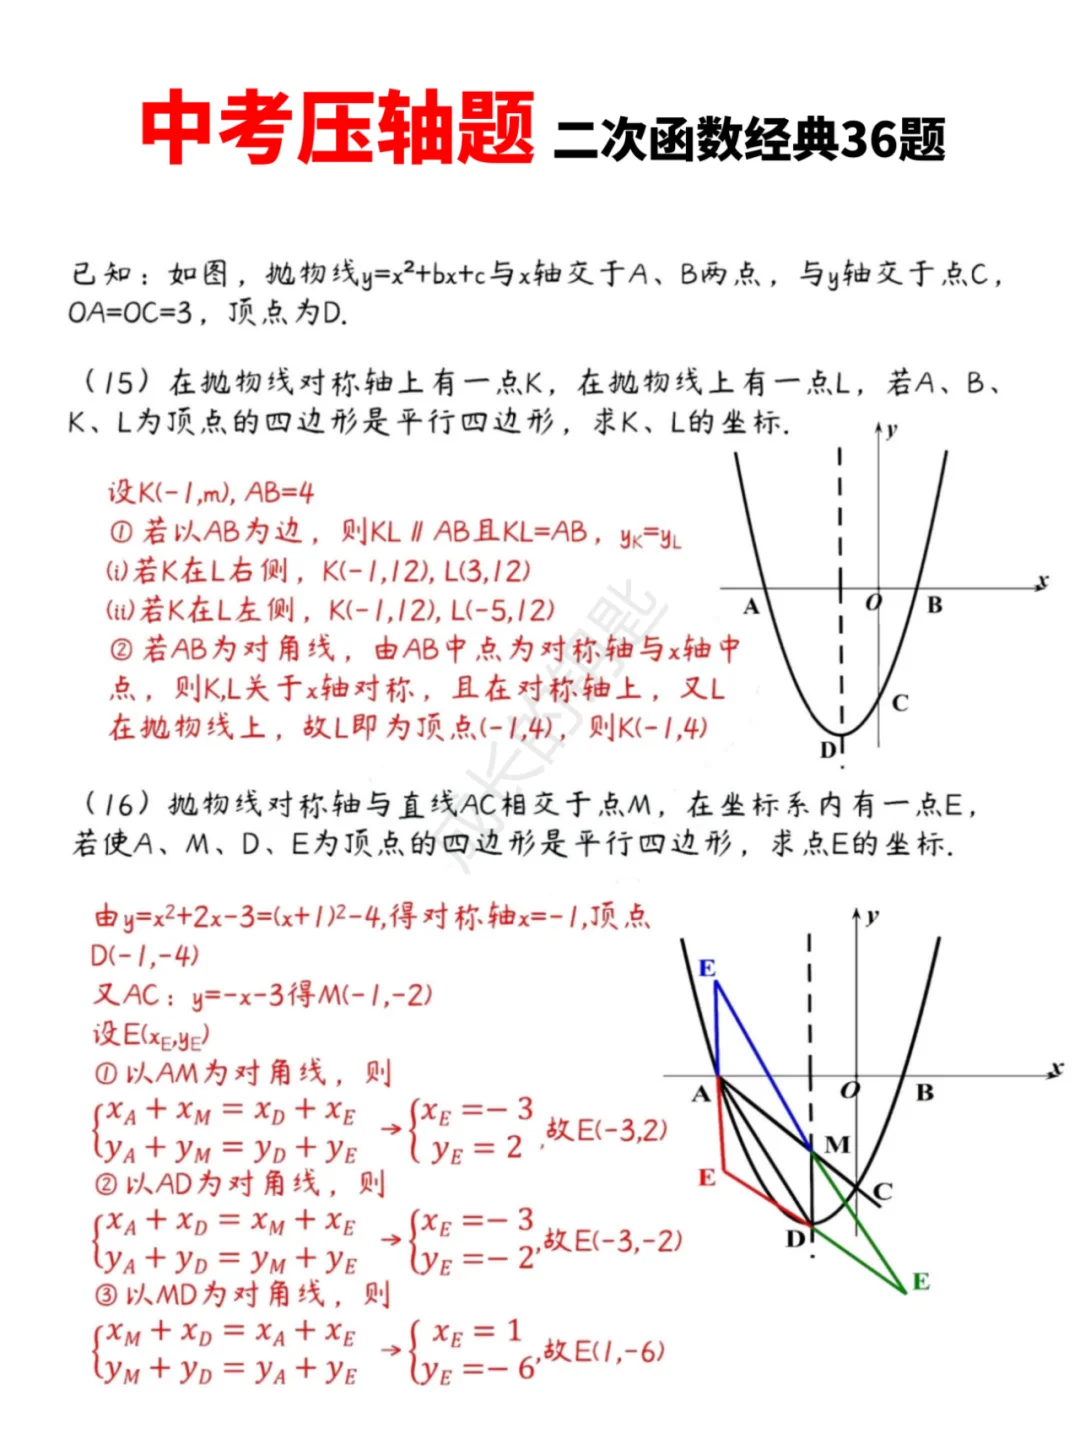 中考压轴题 二次函数经典36题
已知：如图，抛物线y=x²+bx+c与x轴交于A、B两点，与y轴交于点C，
OA=OC=3，顶点为D.
（15）在抛物线对称轴上有一点K，在抛物线上有一点L，若A、B、
K、L为顶点的四边形是平行四边形，求K、L的坐标.
设K(-1,m), AB=4
① 若以AB为边，则KL∥AB且KL=AB，yK=yL
(i)若K在L右侧，K(-1,12), L(3,12)
(ii)若K在L左侧，K(-1,12), L(-5,12)
② 若AB为对角线，由AB中点为对称轴与x轴中
点，则K,L关于x轴对称，且在对称轴上，又L
在抛物线上，故L即为顶点(-1,4)，则K(-1,4)
y
x
A
O
B
C
D
（16）抛物线对称轴与直线AC相交于点M，在坐标系内有一点E，
若使A、M、D、E为顶点的四边形是平行四边形，求点E的坐标.
由y=x²+2x-3=(x+1)²-4,得对称轴x=-1,顶点
D(-1,-4)
又AC：y=-x-3得M(-1,-2)
设E(xE,yE)
①以AM为对角线，则
{xA + xM = xD + xE → {xE =− 3
yA + yM = yD + yE yE = 2 ,故E(-3,2)
②以AD为对角线，则
{xA + xD = xM + xE → {xE =− 3
yA + yD = yM + yE yE =− 2 ,故E(-3,-2)
③以MD为对角线，则
{xM + xD = xA + xE → { xE = 1
yM + yD = yA + yE yE =− 6 ,故E(1,-6)
y
E
x
A
O
B
M
E
C
D
E
成长的钥匙